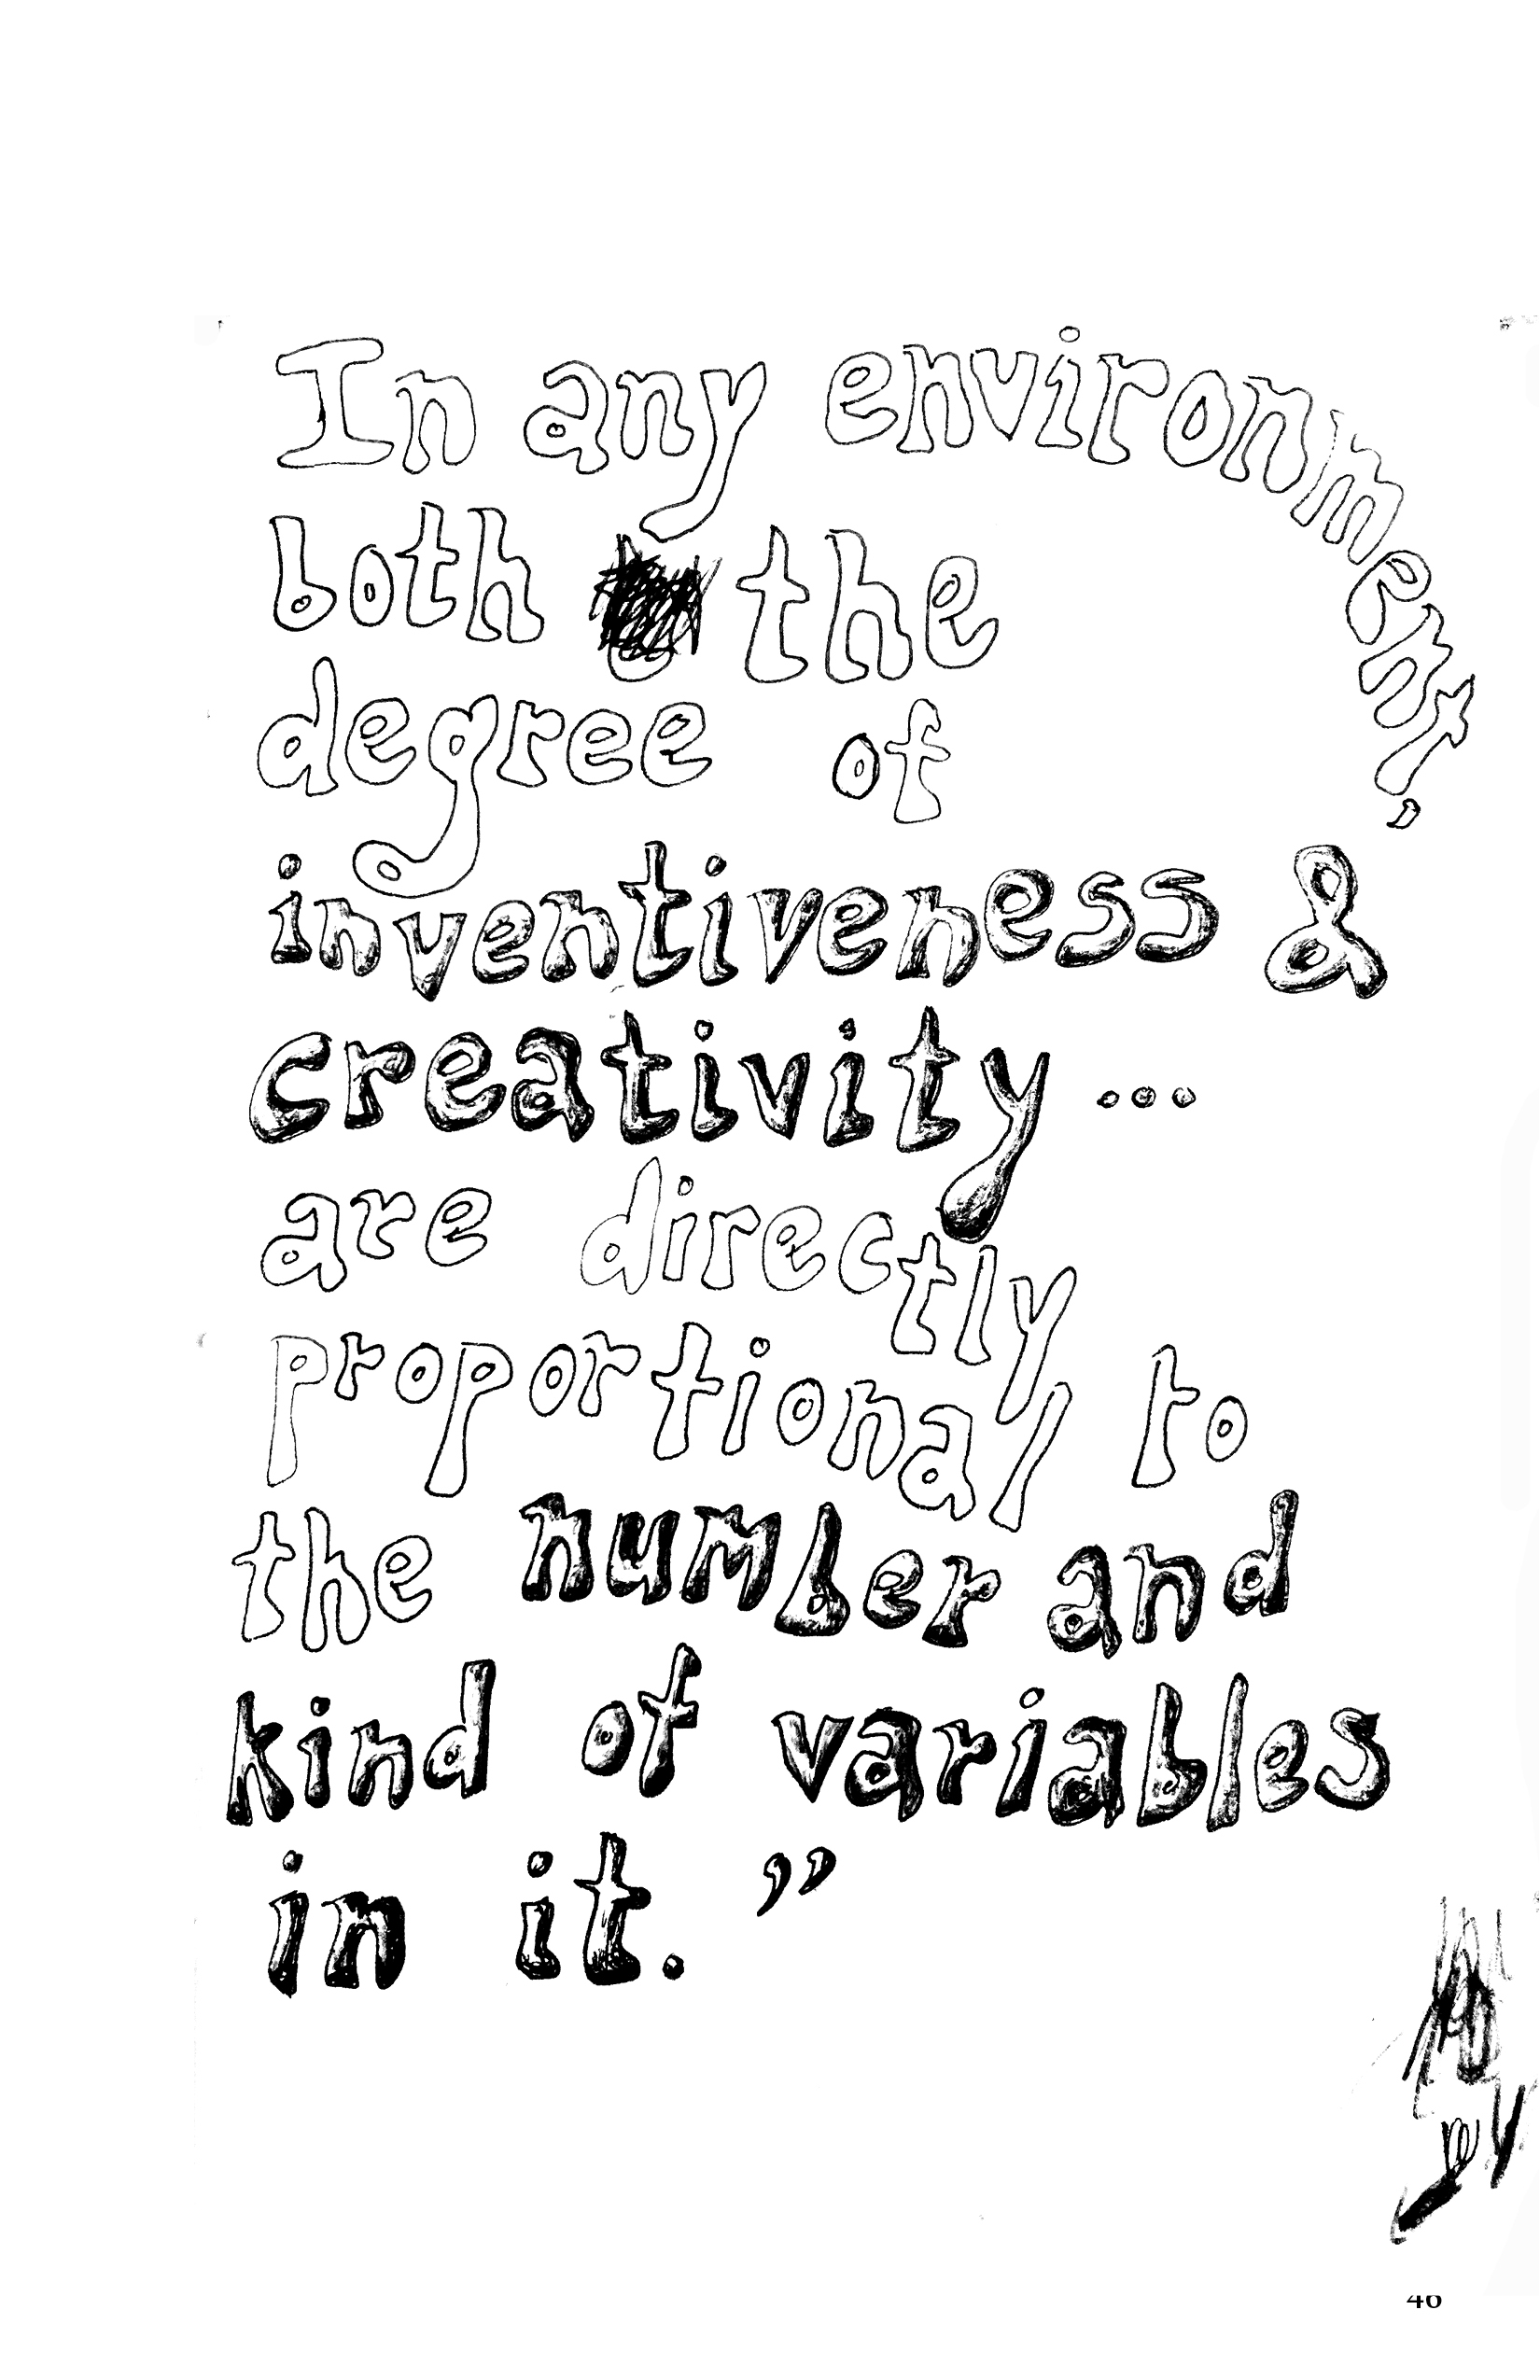 In any environment,
both the
degree of
inventiveness &
creativity ...
are directly
proportional to
the number and
kind of variables
in it.”
46